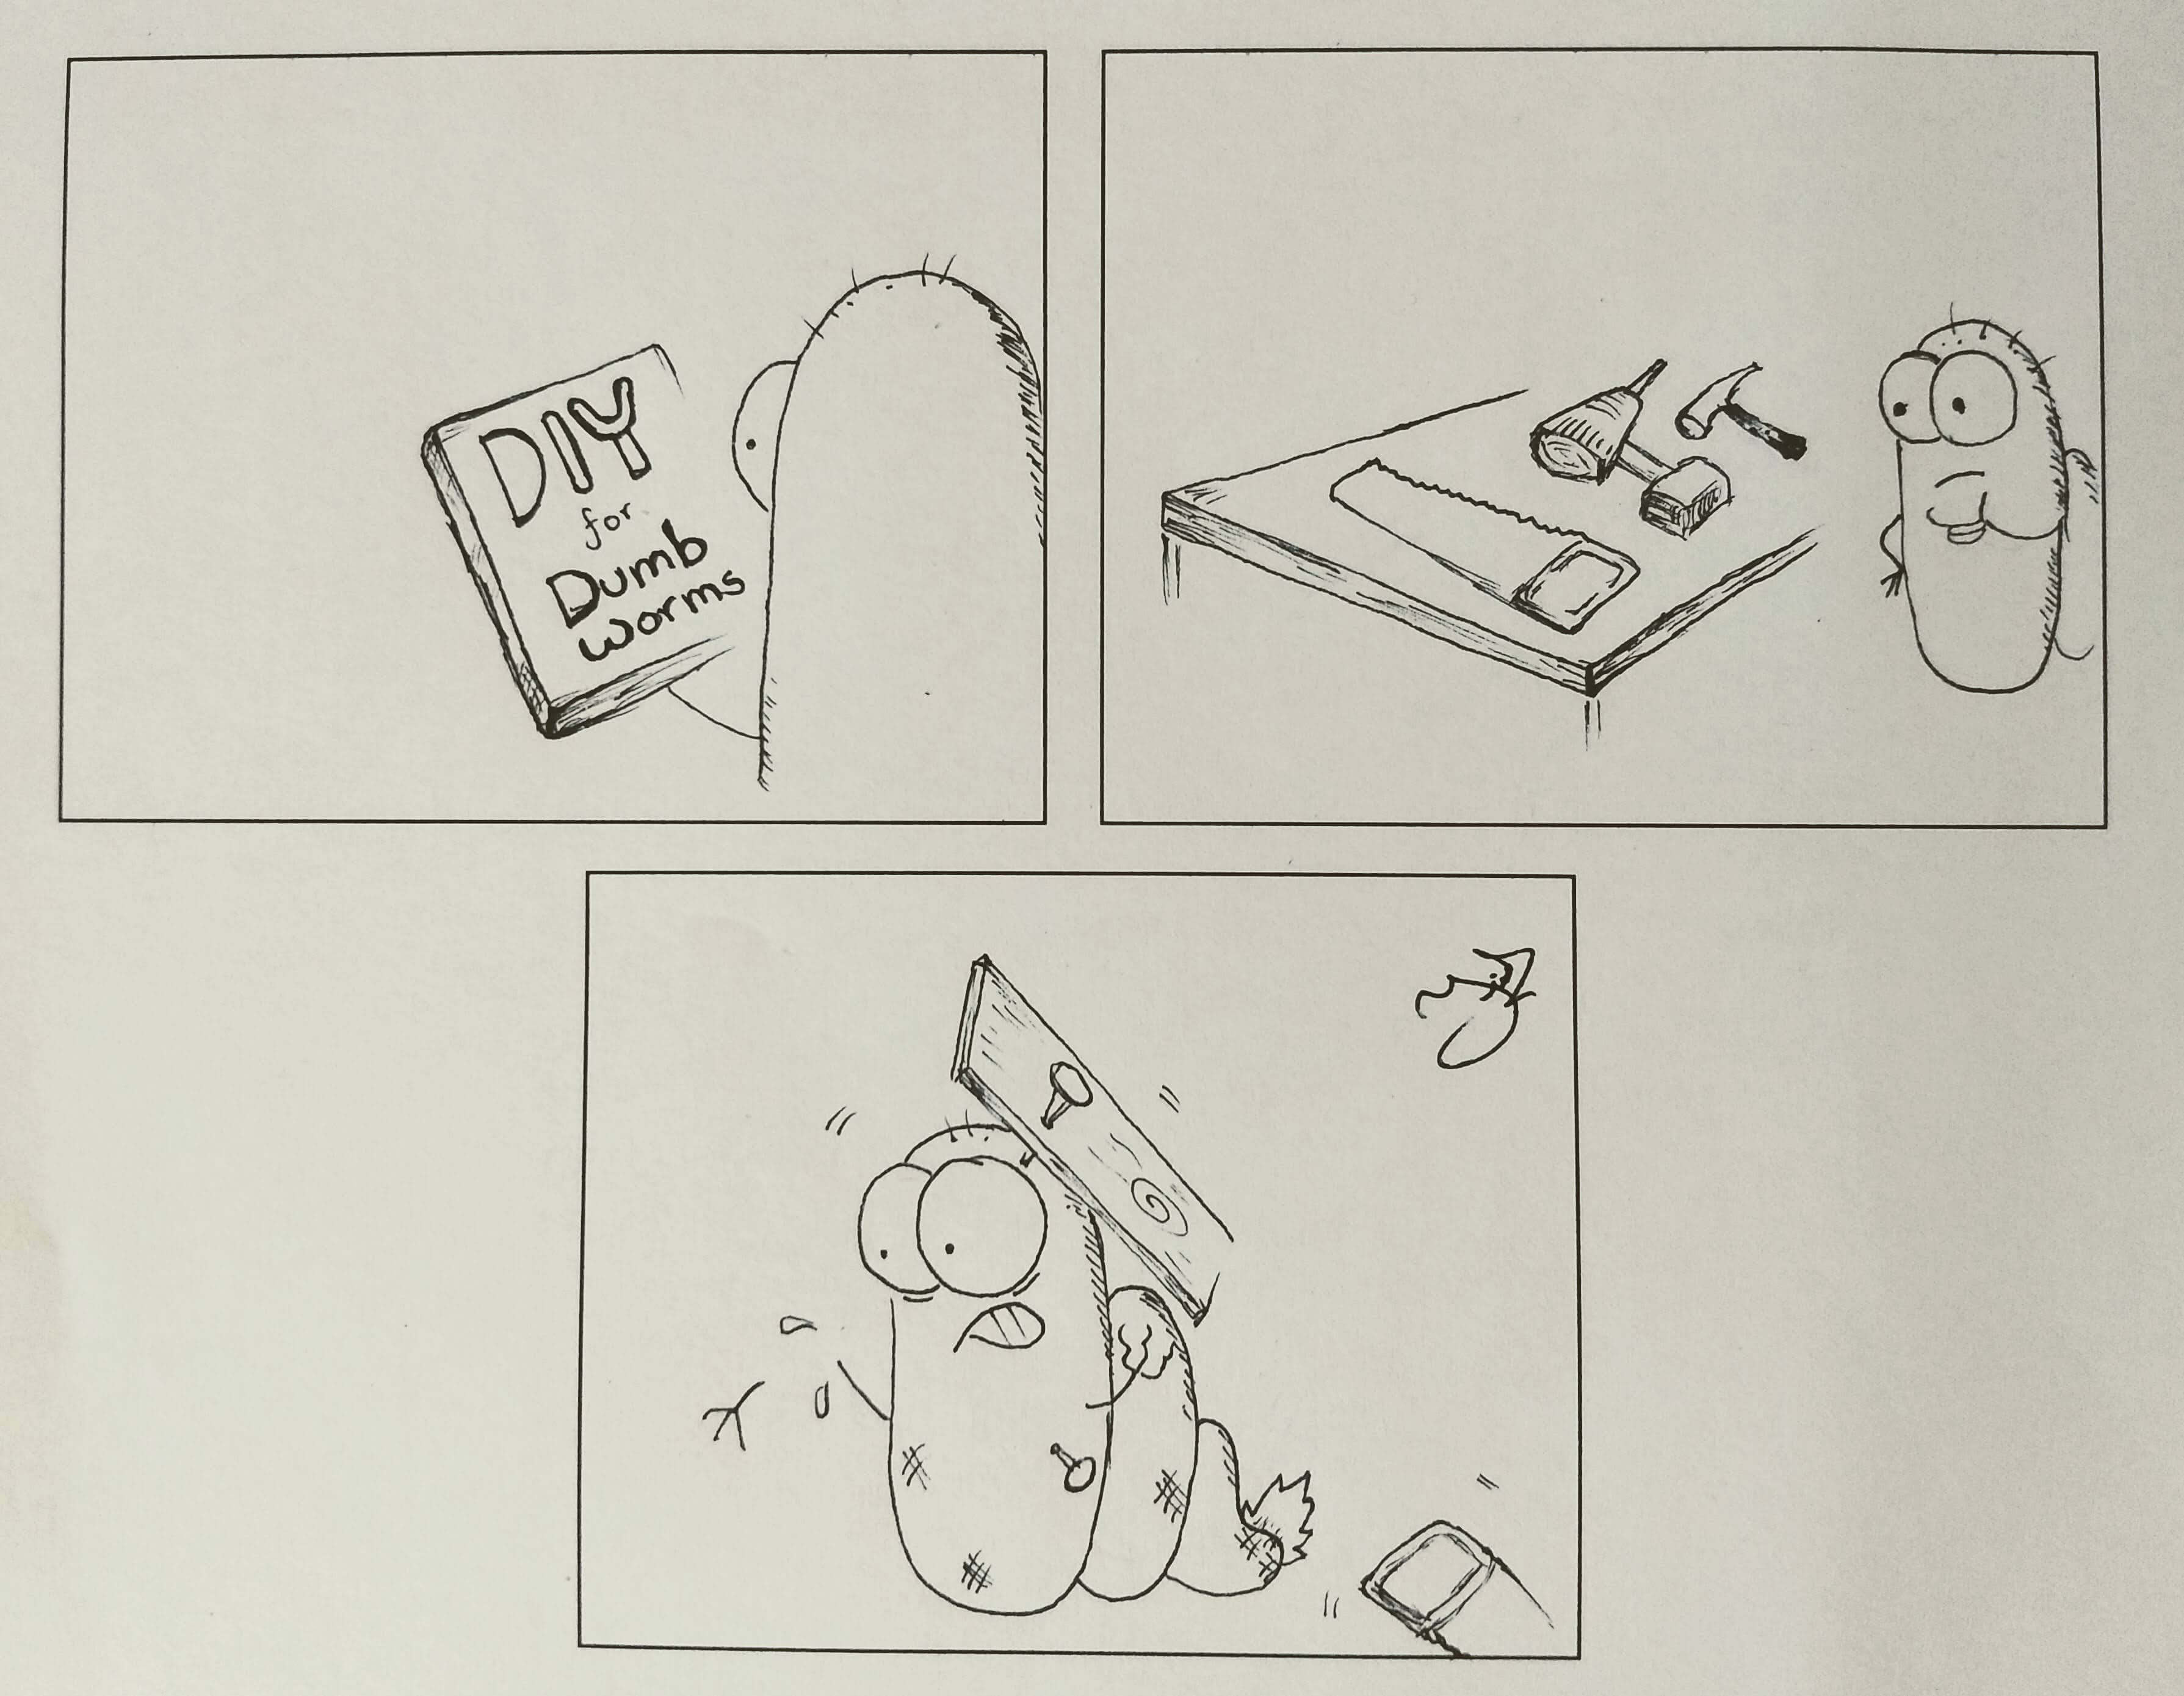 DIY
for
Dumb
worms